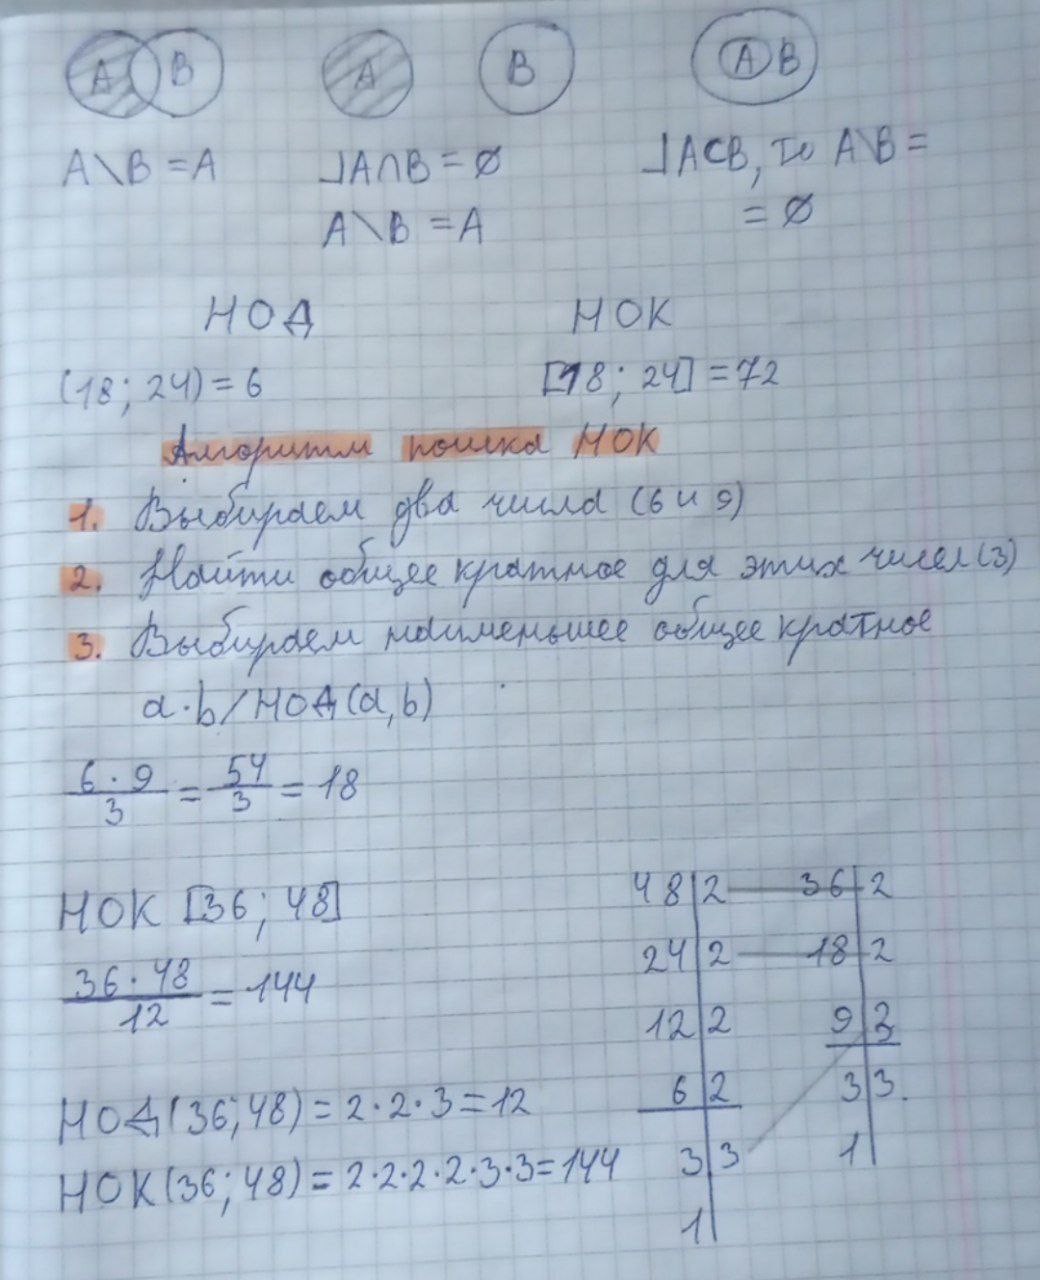 A B A B A B
A\B = A ⅃A∩B = ∅ ⅃A⊂B, то A\B =
A\B = A = ∅
НОД НОК
(18; 24) = 6 [18; 24] = 72
Алгоритм поиска НОК
1. Выбираем два числа (6 и 9)
2. Найти общее кратное для этих чисел (3)
3. Выбираем наименьшее общее кратное
a·b/НОД(a,b)
6·9/3 = 54/3 = 18
НОК [36; 48]
36·48/12 = 144
НОД(36; 48) = 2·2·3 = 12
НОК(36; 48) = 2·2·2·2·3·3 = 144
48|2 36|2
24|2 18|2
12|2 9|3
6|2 3|3.
3|3 1|
1|